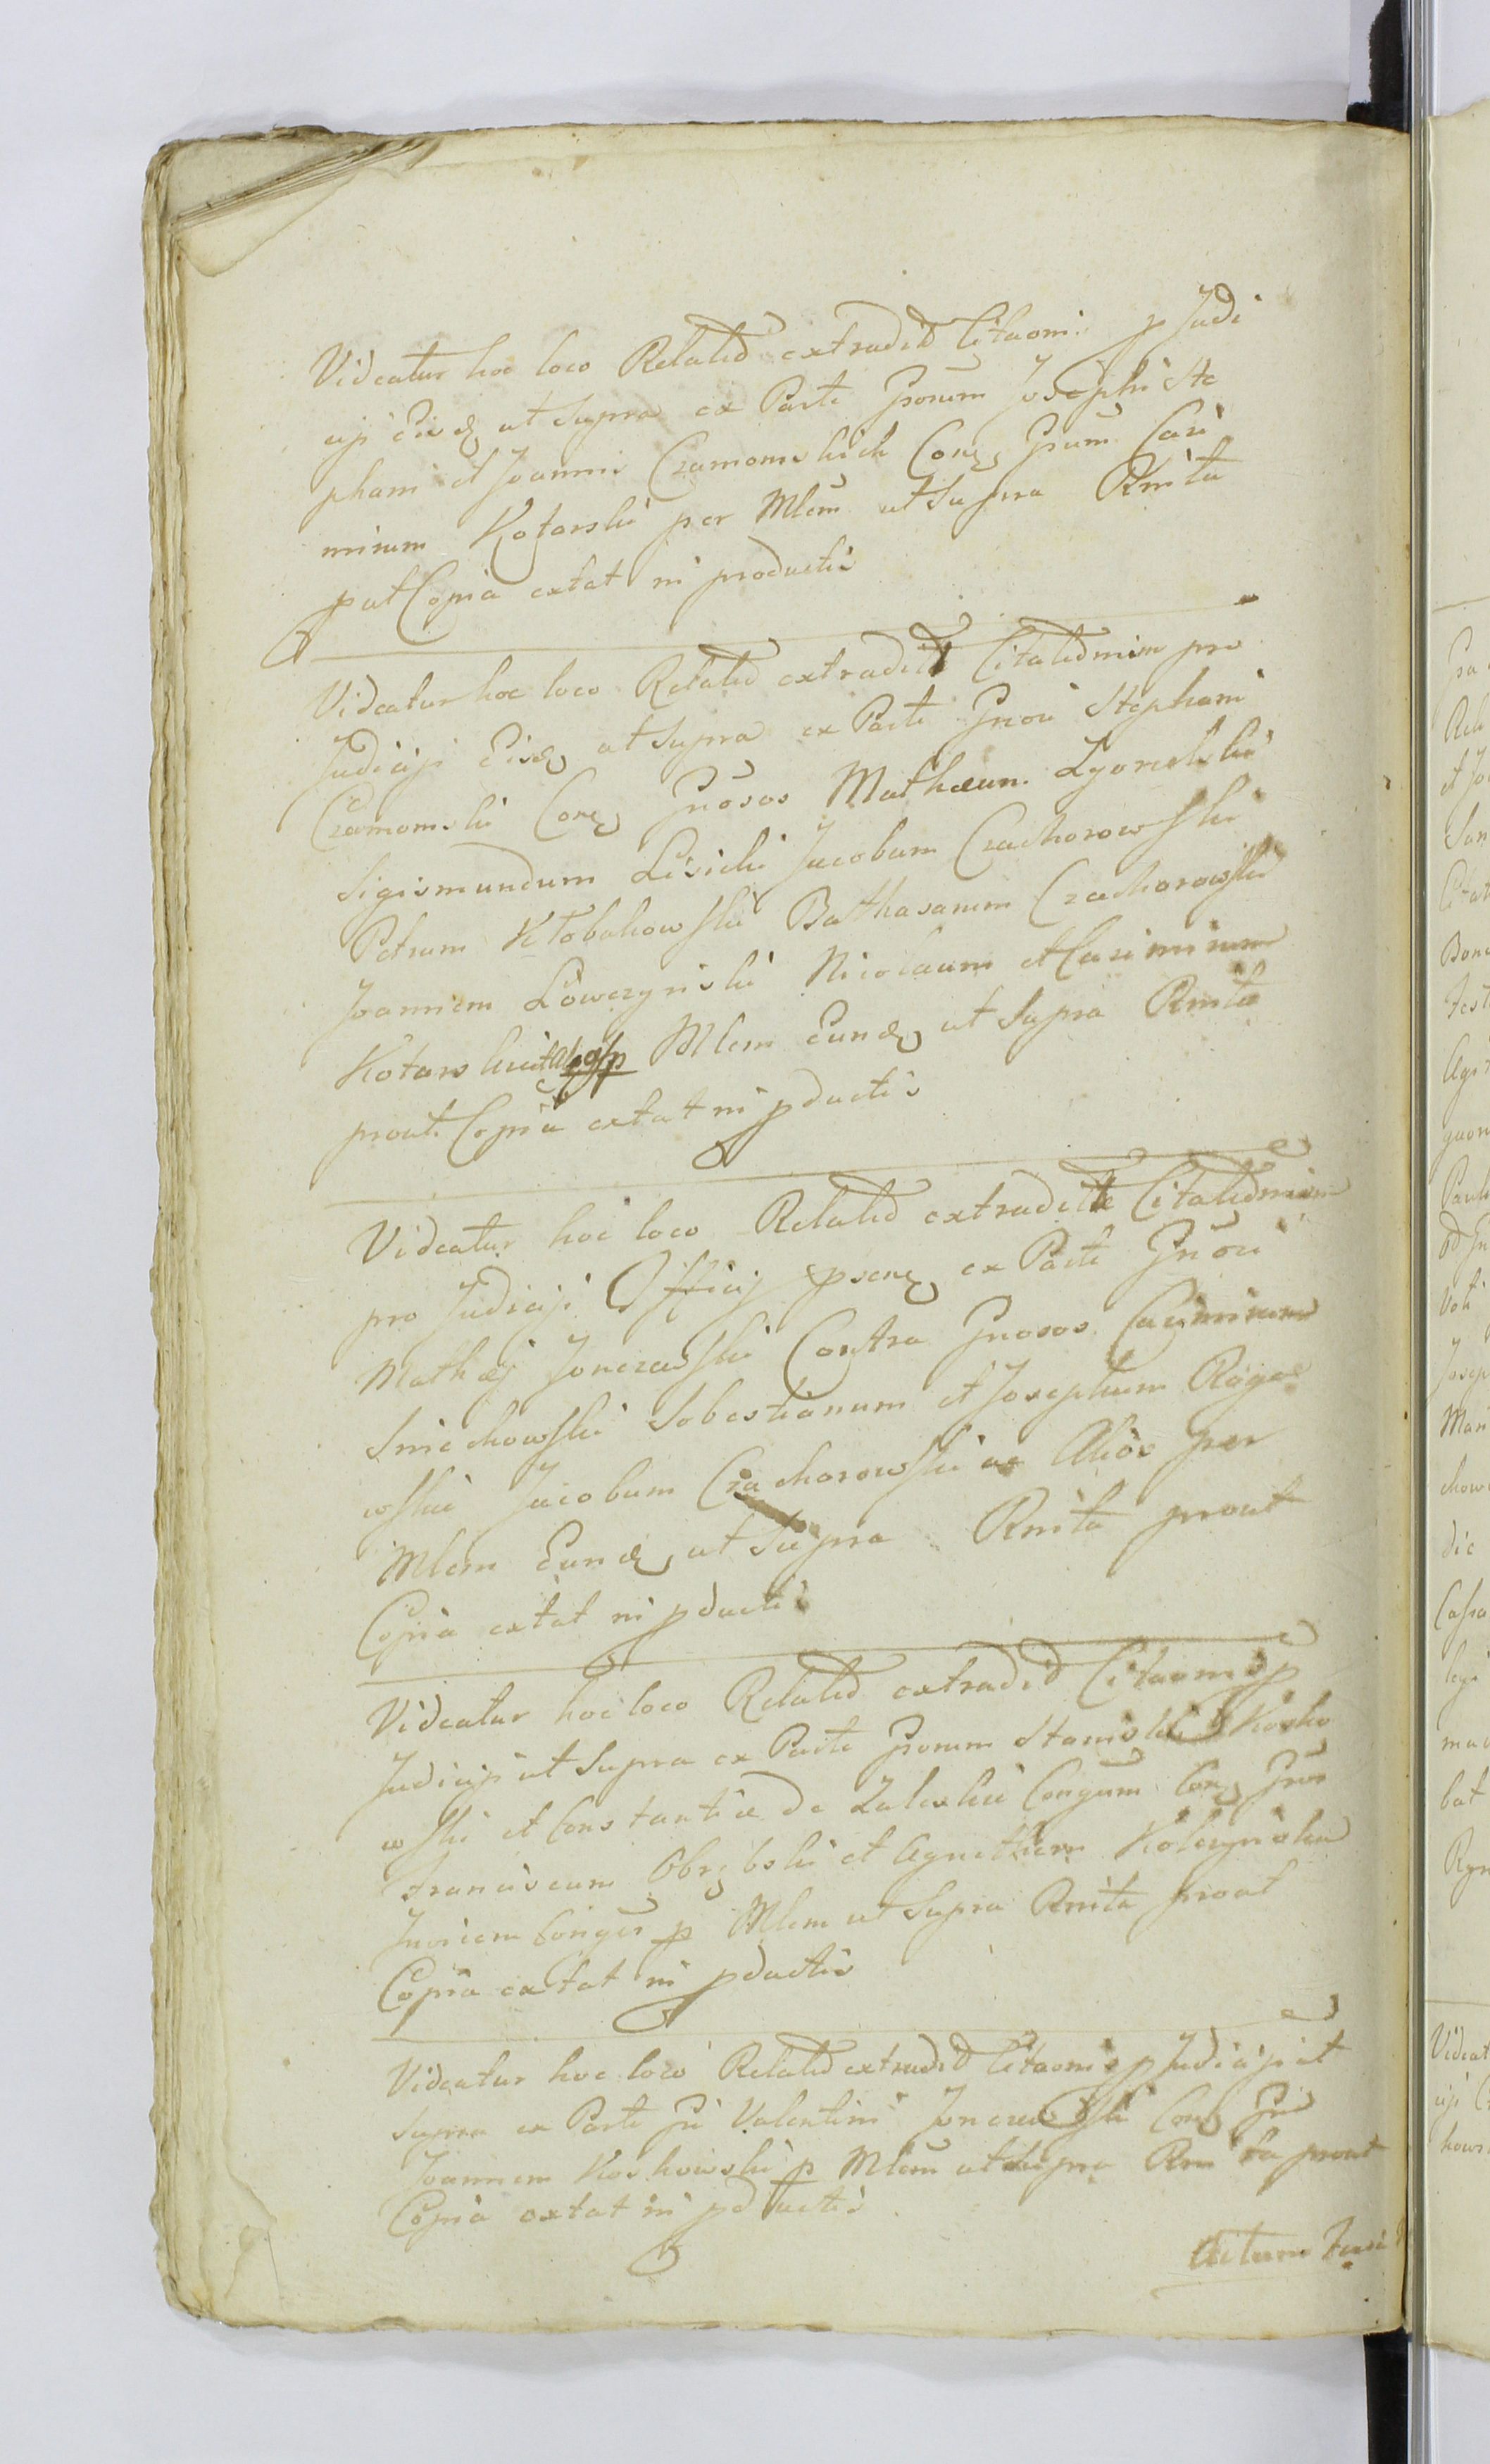 Videatur hoc loco Relatio extradit Citaoni p Judi
cij Eisd ut supra ex Parte Gsorum Josephi Ste
phani et Joannis Czamomskich Conq Gsum Casi
mirum Kotarski per Mlem ut Supra Rnita
put Copia extat in productis
Videatur hoc loco Relatio extradit Citationum pro
Judicij Eisd ut Supra ex Parte Gnosi Stephani
Czamomski Conq Gnosos Mathæum Zgorzelski
Sigismundum Lisicki Jacobum Czachorowski
Petrum Kłobukowski Balthasarum Czachorowski
Joannem Łowczynski Nicolaum et Casimirum
Kotarski Mlem Eund ut Supra Rnita
prout Copia extat in pductis
Videatur hoc loco Relatio extradit Citationum
pro Judicij Officij psenq ex Parte Gnosi
Mathæj Jonczewski Contra Gnosos Casimirum
Sniechowski Sobestianum et Josephum Roga
wski Jacobum Czachorowski ac Alios per
Mlem Eund ut Supra Rnita prout
Copia extat in pductis
Videatur hoc loco Relatio extradit Citaonis p
Judicij ut Supra ex Parte Gsorum Stanislai Kosko
wski et Constantiæ de Zaleskie Congum Conq Gnos
Franciscum Obrębski et Agnetham Kolczynska
Invicem Conges p Mlem ut Supra Rnita prout
Copia extat in pductis
Videatur hoc loco Relatio extradit Citaonis p Judicij ut
Supra ex Parte Gsi Valentini Jonczewski Conq Gsu
Joannem Koskowski p Mlem ut Supra Rnita prout
Copia extat in pductis
Actum